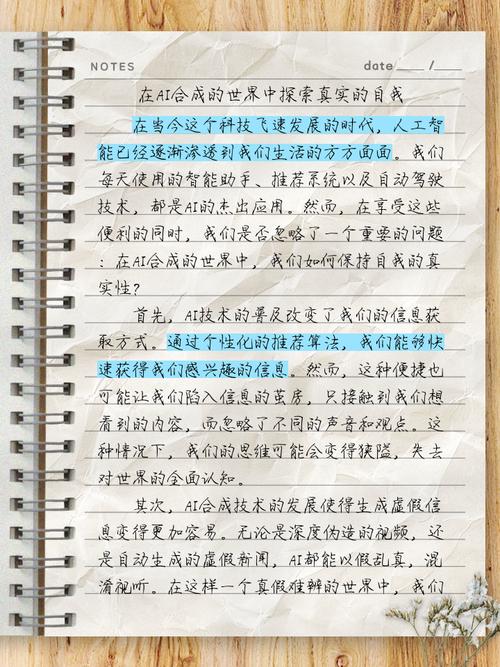 NOTES
date ____ / ____
在AI合成的世界中探索真实的自我
在当今这个科技飞速发展的时代，人工智
能已经逐渐渗透到我们生活的方方面面。我们
每天使用的智能助手、推荐系统以及自动驾驶
技术，都是AI的杰出应用。然而，在享受这些
便利的同时，我们是否忽略了一个重要的问题
：在AI合成的世界中，我们如何保持自我的真
实性？
首先，AI技术的普及改变了我们的信息获
取方式。通过个性化的推荐算法，我们能够快
速获得我们感兴趣的信息。然而，这种便捷也
可能让我们陷入信息的茧房，只接触到我们想
看到的内容，而忽略了不同的声音和观点。这
种情况下，我们的思维可能会变得狭隘，失去
对世界的全面认知。
其次，AI合成技术的发展使得生成虚假信
息变得更加容易。无论是深度伪造的视频，还
是自动生成的虚假新闻，AI都能以假乱真，混
淆视听。在这样一个真假难辨的世界中，我们